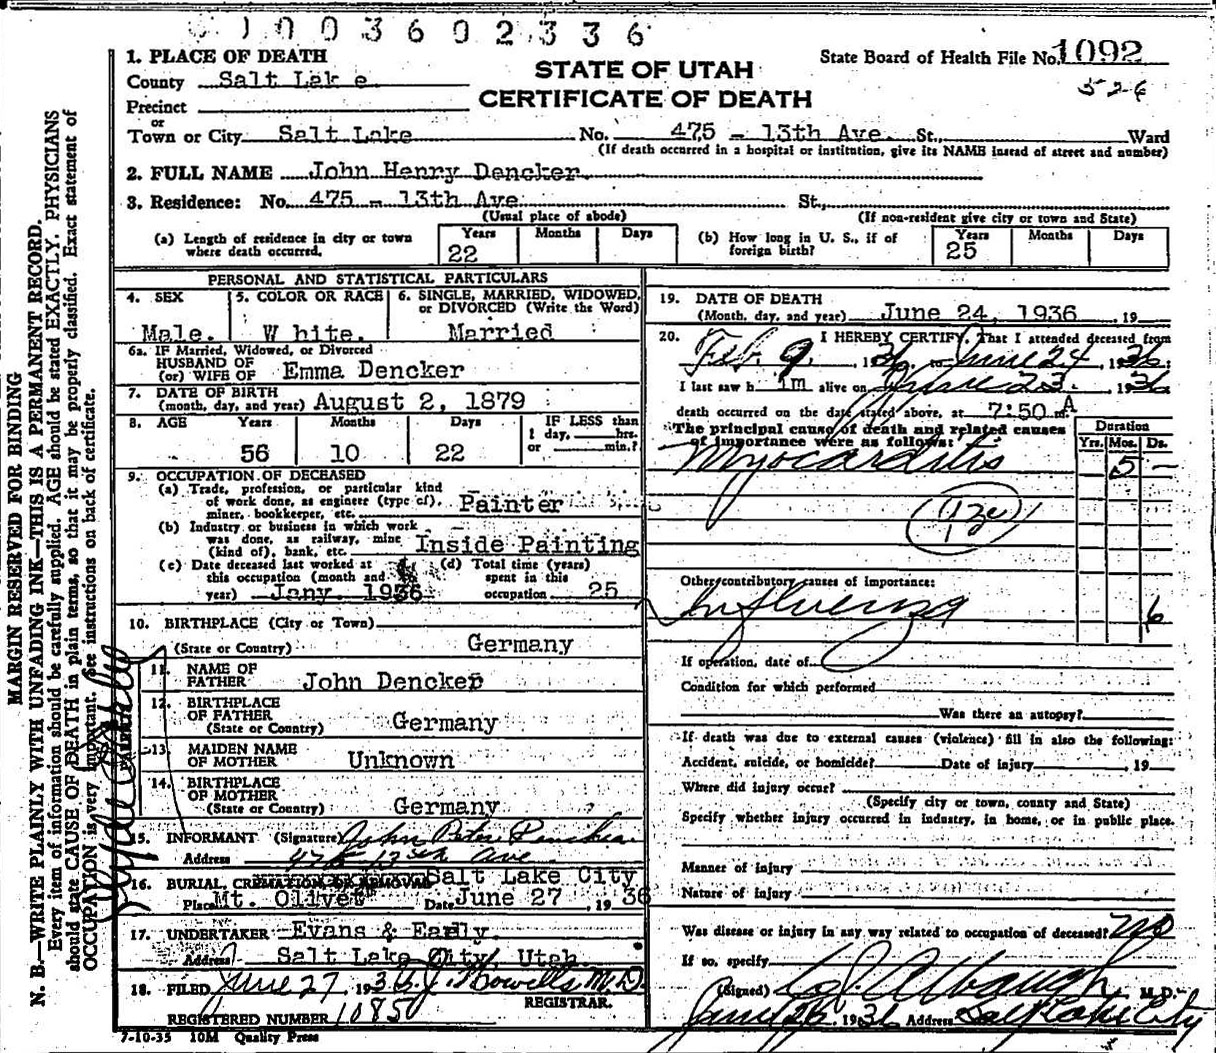 1003602336
1. PLACE OF DEATH
State Board of Health File No. 1092
County Salt Lake
STATE OF UTAH
526
Precinct
CERTIFICATE OF DEATH
or
Town or City Salt Lake No. 475 - 13th Ave. St., Ward
(If death occurred in a hospital or institution, give its NAME instead of street and number)
2. FULL NAME John Henry Dencker
3. Residence: No. 475 - 13th Ave. St.,
(Usual place of abode) (If non-resident give city or town and State)
(a) Length of residence in city or town where death occurred. Years 22 Months Days
(b) How long in U. S., if of foreign birth? Years 25 Months Days
PERSONAL AND STATISTICAL PARTICULARS
4. SEX Male.
5. COLOR OR RACE White.
6. SINGLE, MARRIED, WIDOWED, or DIVORCED (Write the Word) Married
6a. IF Married, Widowed, or Divorced
HUSBAND OF
(or) WIFE OF Emma Dencker
7. DATE OF BIRTH
(month, day, and year) August 2, 1879
8. AGE Years 56 Months 10 Days 22 IF LESS than 1 day, hrs. or min.?
9. OCCUPATION OF DECEASED
(a) Trade, profession, or particular kind
of work done, as engineer (type of),
miner, bookkeeper, etc. Painter
(b) Industry or business in which work
was done, as railway, mine
(kind of), bank, etc. Inside Painting
(c) Date deceased last worked at
this occupation (month and
year) Jany. 1936
(d) Total time (years)
spent in this
occupation 25
10. BIRTHPLACE (City or Town)
(State or Country) Germany
PARENTS
11. NAME OF
FATHER John Dencker
12. BIRTHPLACE
OF FATHER
(State or Country) Germany
13. MAIDEN NAME
OF MOTHER Unknown
14. BIRTHPLACE
OF MOTHER
(State or Country) Germany
15. INFORMANT (Signature) John Peter Dencker
Address 475 13th Ave
16. BURIAL, CREMATION OR REMOVAL Salt Lake City
Place Mt. Olivet Date June 27, 1936
17. UNDERTAKER Evans & Early
Address Salt Lake City, Utah.
18. FILED June 27 1936. J. Howells, M.D.
REGISTRAR.
REGISTERED NUMBER 1085
7-10-35 10M Quality Press
19. DATE OF DEATH
(Month, day, and year) June 24, 1936, 19
20. I HEREBY CERTIFY, That I attended deceased from
Feb. 9, 1936, to June 24, 1936
I last saw him alive on June 23. 1936
death occurred on the date stated above, at 7:50 m. A
The principal cause of death and related causes
of importance were as follows:
Duration
Yrs. Mos. Ds.
Myocarditis 5 -
Other contributory causes of importance:
Influenza 6
If operation, date of
Condition for which performed
Was there an autopsy?
If death was due to external causes (violence) fill in also the following:
Accident, suicide, or homicide? Date of injury, 19
Where did injury occur?
(Specify city or town, county and State)
Specify whether injury occurred in industry, in home, or in public place.
Manner of injury
Nature of injury
Was disease or injury in any way related to occupation of deceased? no
If so, specify
(Signed) Albaugh M. D.
June 26, 1936 Address Salt Lake City
MARGIN RESERVED FOR BINDING
N. B.—WRITE PLAINLY WITH UNFADING INK—THIS IS A PERMANENT RECORD.
Every item of information should be carefully supplied. AGE should be stated EXACTLY. PHYSICIANS
should state CAUSE OF DEATH in plain terms, so that it may be properly classified. Exact statement of
OCCUPATION is very important. See instructions on back of certificate.